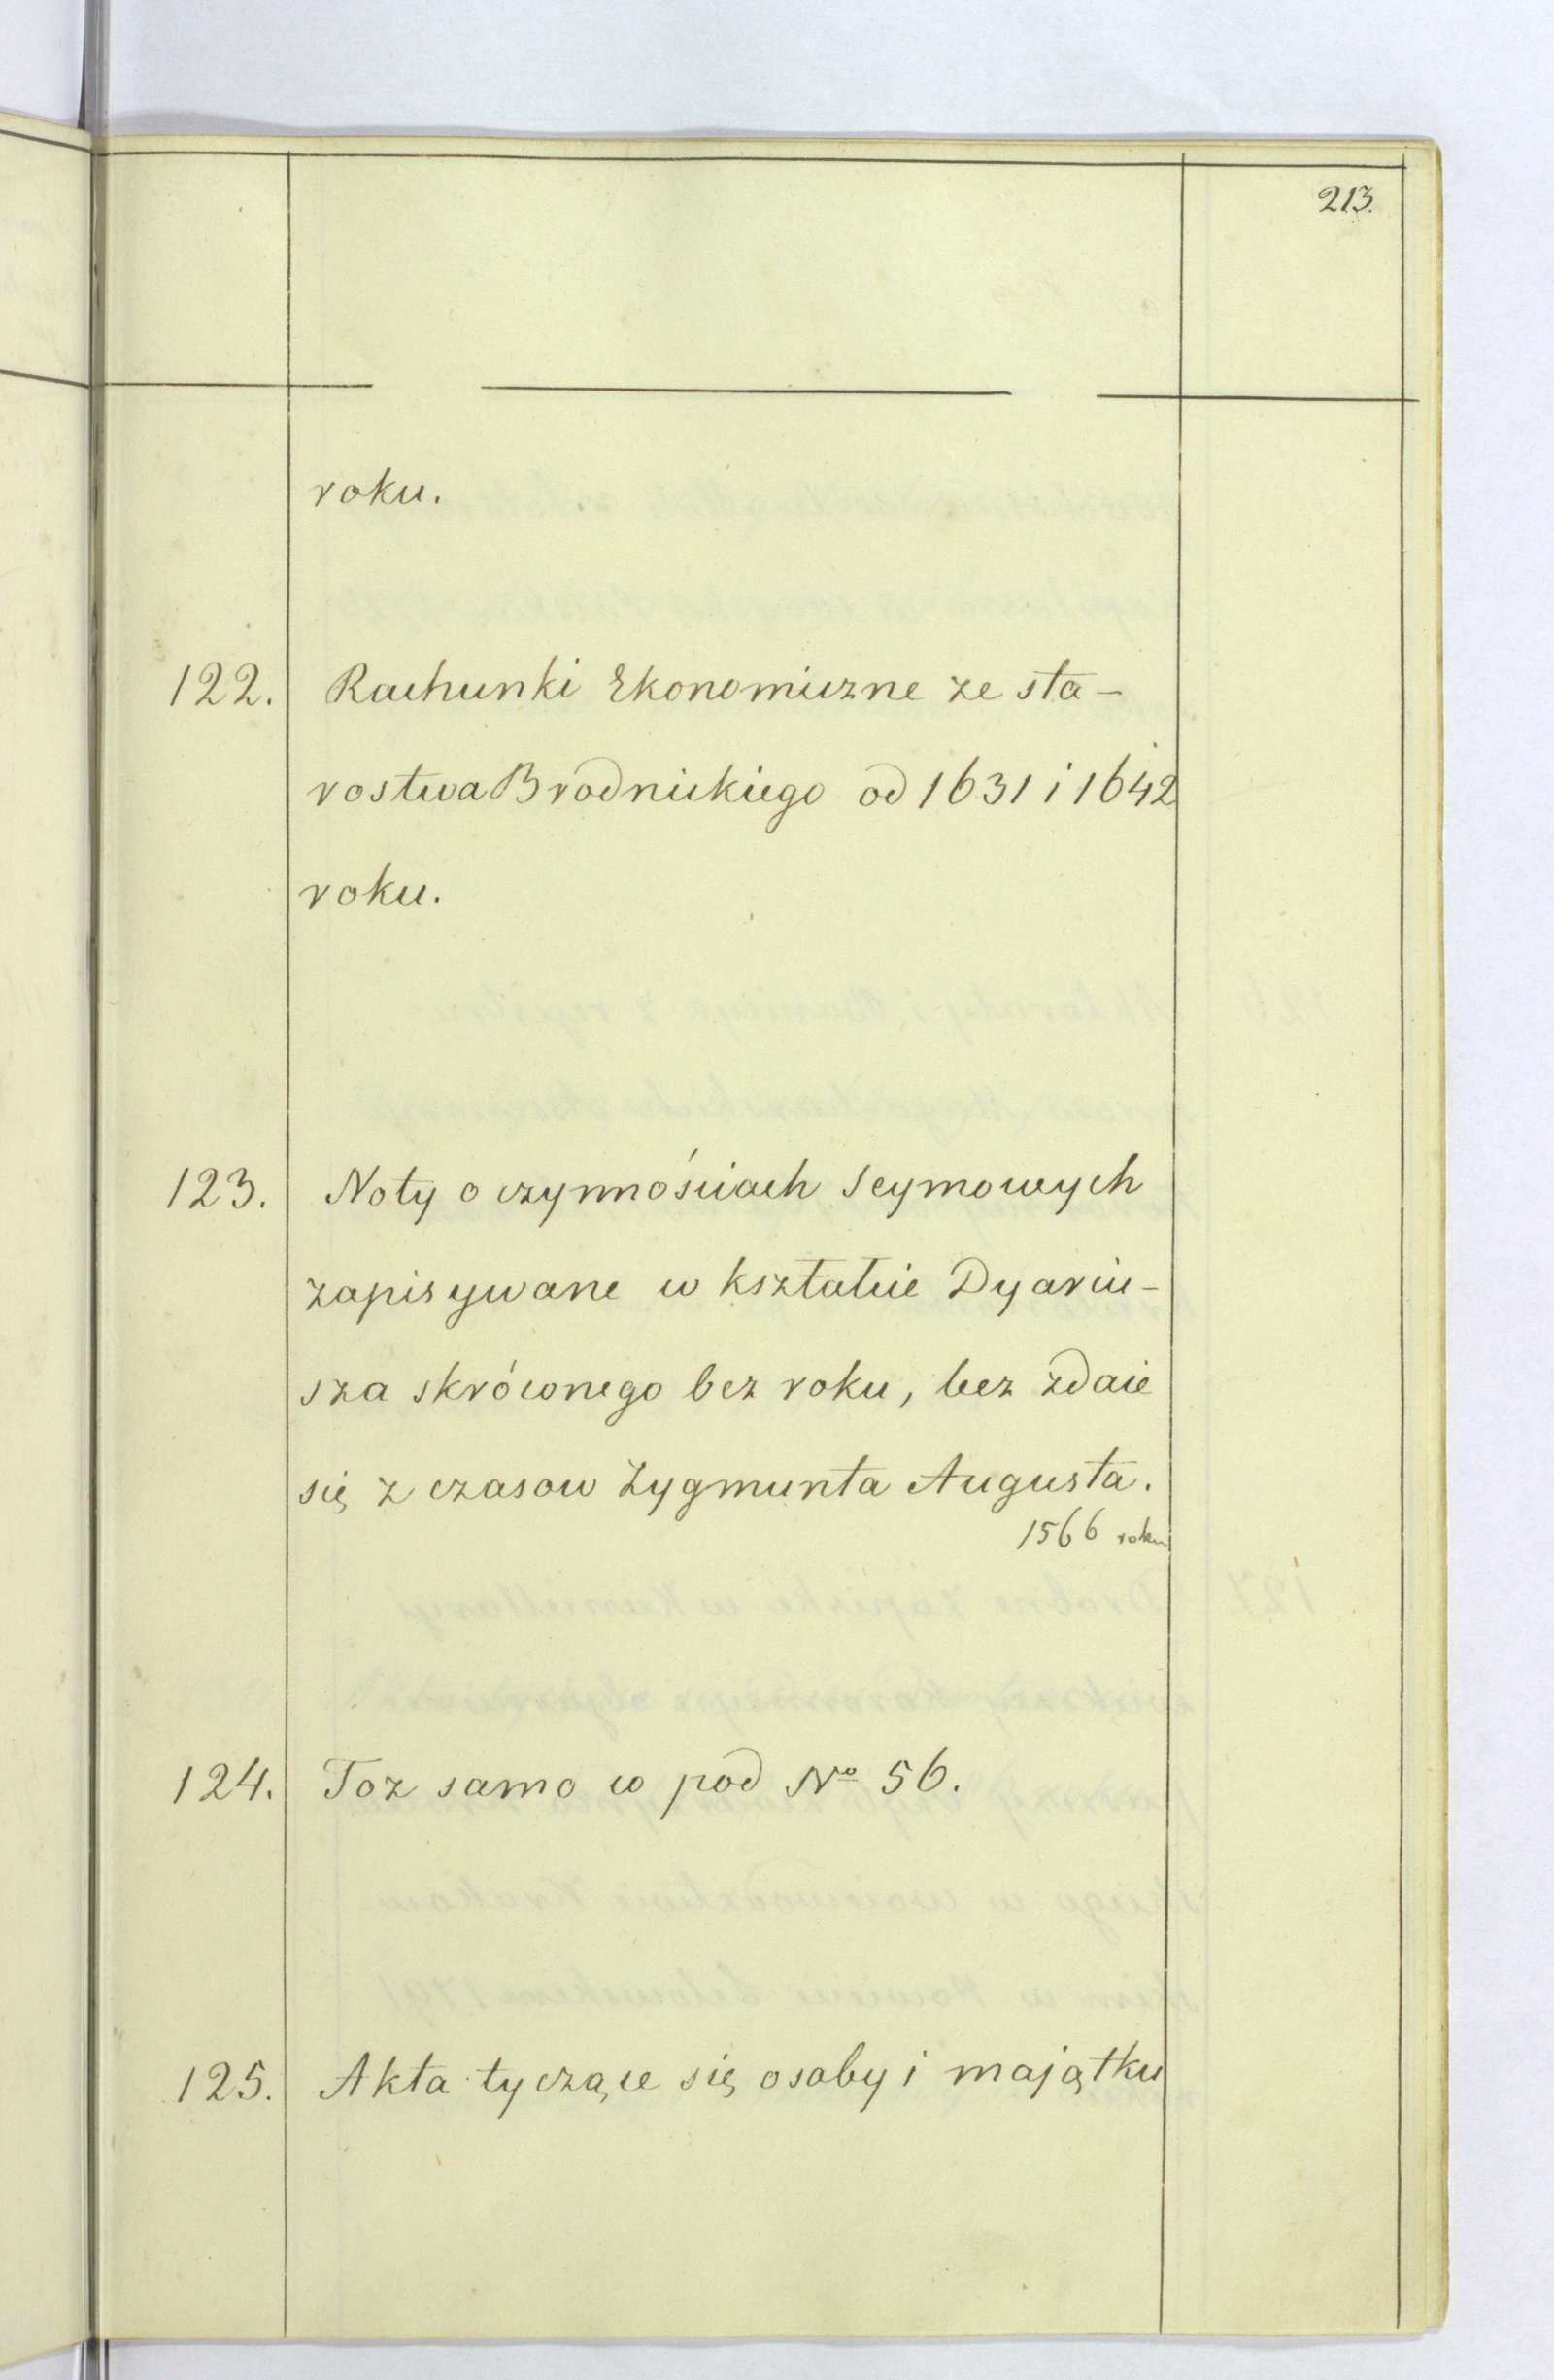 213.
roku.
122. Rachunki Ekonomiczne ze sta-
rostwa Brodnickiego od 1631 i 1642
roku.
123. Noty o czynnościach seymowych
zapisywane w kształcie Dyariu-
sza skróconego bez roku, lecz zdaie
się z czasow Zygmunta Augusta.
1566 roku
124. Toz samo co pod No 56.
125. Akta tyczące się osoby i majątku